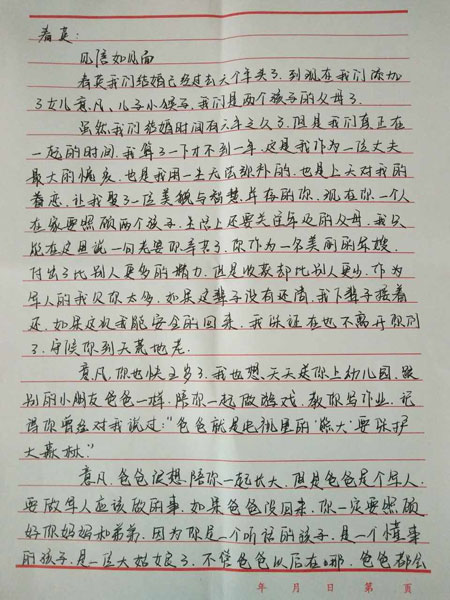 春英:
见信如见面
春英我们结婚已经过去六个年头了,到现在我们添加
了女儿意凡、儿子小侯子,我们是两个孩子的父母了。
虽然我们结婚时间有六年之久了,但是我们真正在
一起的时间,我算了一下才不到一年,这是我作为一位丈夫
最大的愧疚,也是我用一生无法弥补的,也是上天对我的
眷恋,让我娶了一位美貌与智慧并存的你,现在你一个人
在家要照顾两个孩子,生活上还要关注年迈的父母,我只
能在这里说一句老婆你辛苦了,你作为一名美丽的军嫂,
付出了比别人更多的精力,但是收获却比别人更少,作为
军人的我欠你太多,如果这辈子没有还清,我下辈子接着
还,如果这次我能安全的回来,我保证在也不离开你们
了,守候你到天荒地老。
意凡,你也快五岁了,我也想天天送你上幼儿园,跟
别的小朋友爸爸一样,陪你一起做游戏,教你写作业,记
得你曾经对我说过:"爸爸就是电视里的'熊大'要保护
大森林。"
意凡,爸爸很想陪你一起长大,但是爸爸是个军人,
要做军人应该做的事,如果爸爸没回来,你一定要照顾
好你妈妈和弟弟,因为你是一个听话的孩子,是一个懂事
的孩子,是一位大姑娘了,不管爸爸以后在哪,爸爸都会
年 月 日 第 页